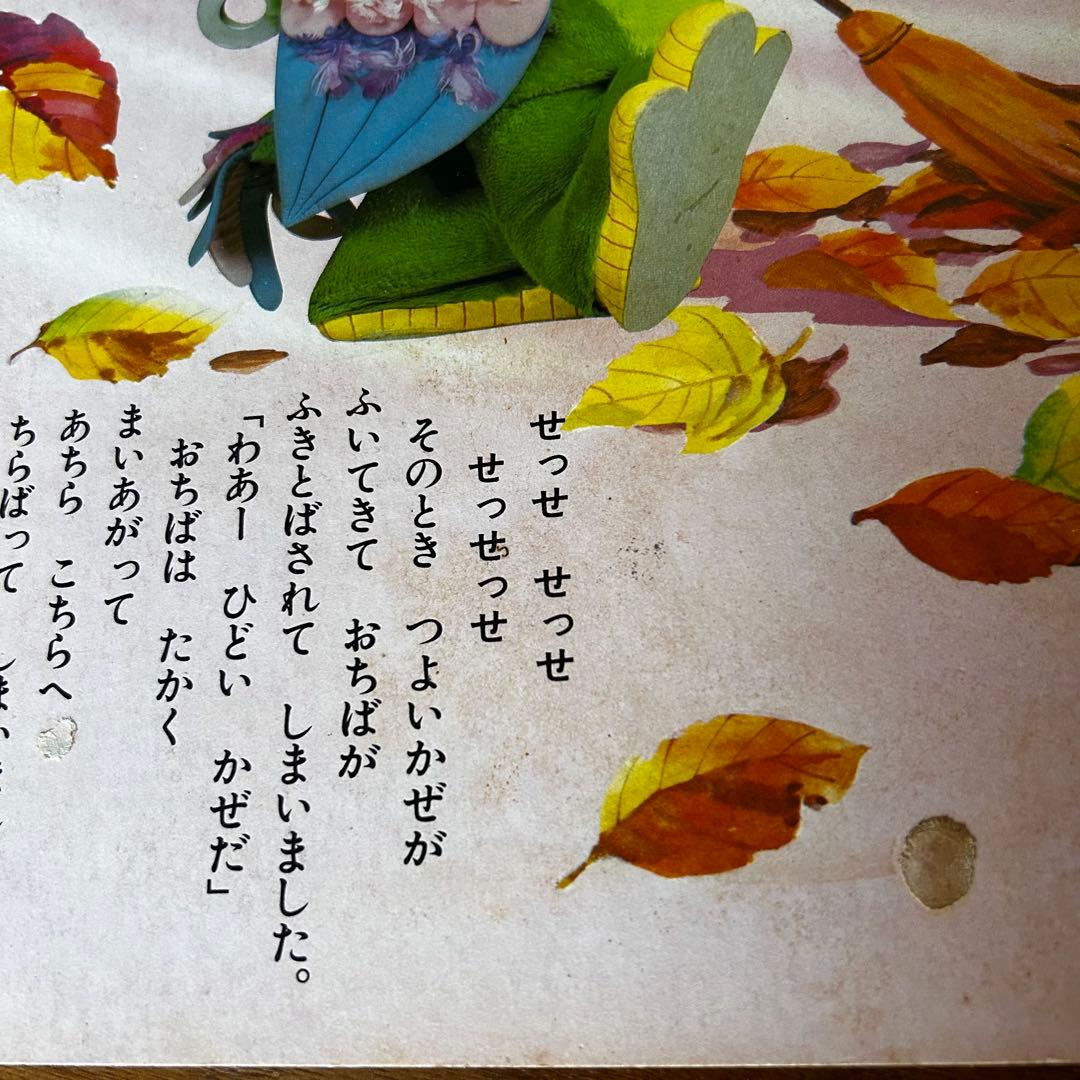 せっせ　せっせ
せっせっせ
そのとき　つよいかぜが
ふいてきて　おちばが
ふきとばされて　しまいました。
「わあー　ひどい　かぜだ」
おちばは　たかく
まいあがって
あちら　こちらへ
ちらばって